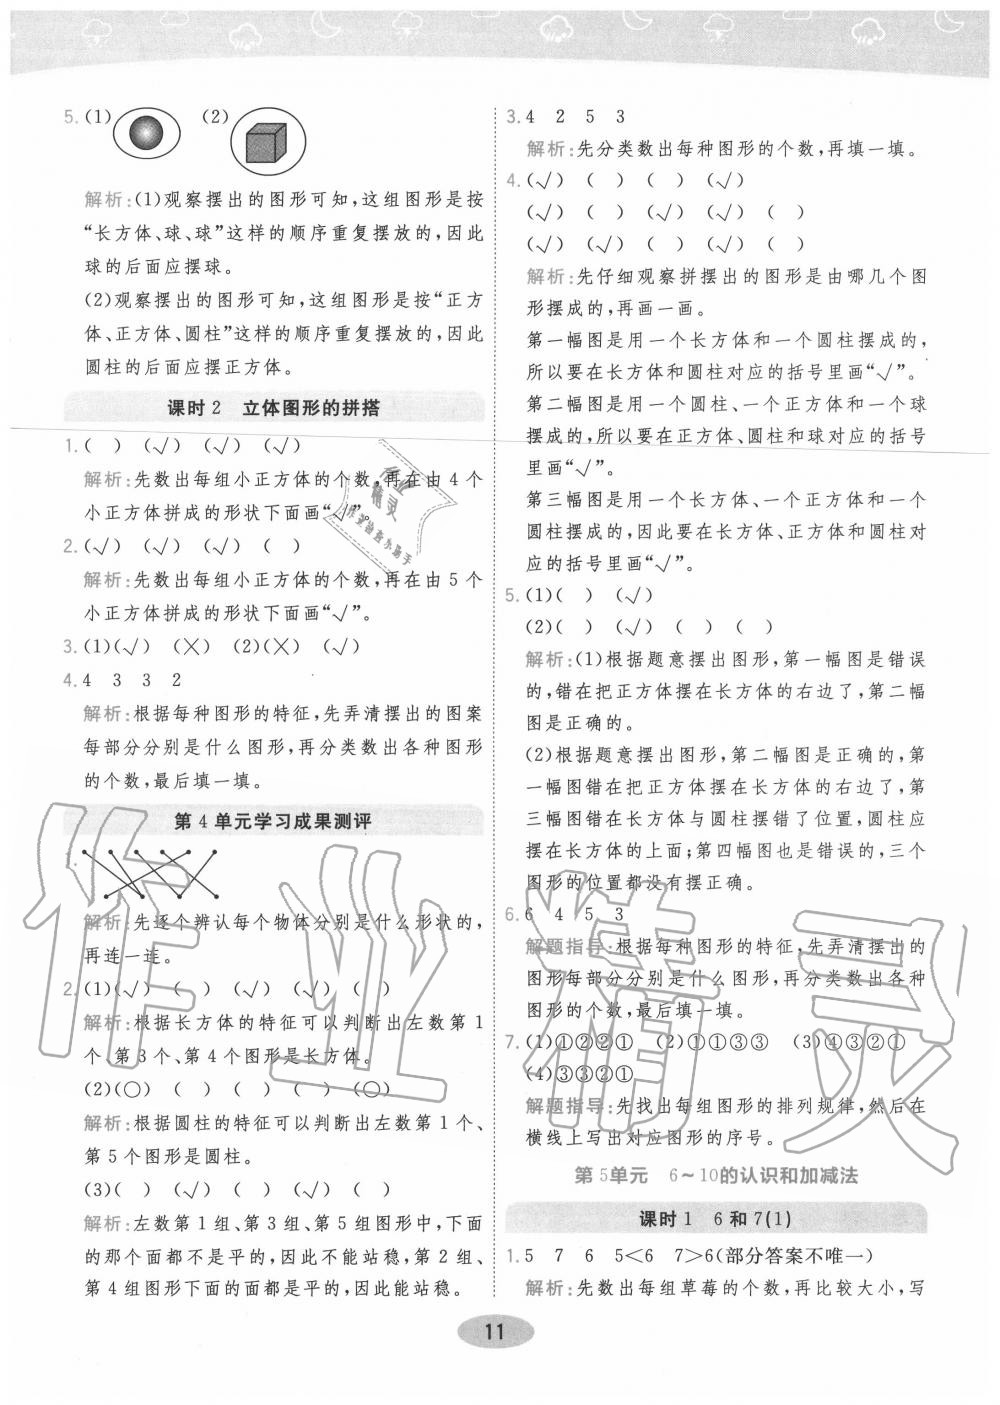 5. (1) (2)
解析:(1)观察摆出的图形可知,这组图形是按
“长方体、球、球”这样的顺序重复摆放的,因此
球的后面应摆球。
(2)观察摆出的图形可知,这组图形是按“正方
体、正方体、圆柱”这样的顺序重复摆放的,因此
圆柱的后面应摆正方体。
课时2 立体图形的拼搭
1.( ) (√) (√) (√)
解析:先数出每组小正方体的个数,再在由 4 个
小正方体拼成的形状下面画“√”。
2.(√) (√) (√) ( )
解析:先数出每组小正方体的个数,再在由 5 个
小正方体拼成的形状下面画“√”。
3.(1)(√) (×) (2)(×) (√)
4.4 3 3 2
解析:根据每种图形的特征,先弄清摆出的图案
每部分分别是什么图形,再分类数出各种图形
的个数,最后填一填。
第4单元学习成果测评
1.
解析:先逐个辨认每个物体分别是什么形状的,
再连一连。
2.(1)(√) ( ) (√) (√) ( )
解析:根据长方体的特征可以判断出左数第 1
个、第 3 个、第 4 个图形是长方体。
(2)(○) ( ) ( ) ( ) (○)
解析:根据圆柱的特征可以判断出左数第 1 个、
第 5 个图形是圆柱。
(3)( ) (√) ( ) (√) ( )
解析:左数第 1 组、第 3 组、第 5 组图形中,下面
的那个面都不是平的,因此不能站稳,第 2 组、
第 4 组图形下面的面都是平的,因此能站稳。
3.4 2 5 3
解析:先分类数出每种图形的个数,再填一填。
4.(√) ( ) ( ) (√)
(√) ( ) (√) (√) ( )
(√) (√) ( ) (√) ( )
解析:先仔细观察拼摆出的图形是由哪几个图
形摆成的,再画一画。
第一幅图是用一个长方体和一个圆柱摆成的,
所以要在长方体和圆柱对应的括号里画“√”。
第二幅图是用一个圆柱、一个正方体和一个球
摆成的,所以要在正方体、圆柱和球对应的括号
里画“√”。
第三幅图是用一个长方体、一个正方体和一个
圆柱摆成的,因此要在长方体、正方体和圆柱对
应的括号里画“√”。
5.(1)( ) (√)
(2)( ) (√) ( ) ( )
解析:(1)根据题意摆出图形,第一幅图是错误
的,错在把正方体摆在长方体的右边了,第二幅
图是正确的。
(2)根据题意摆出图形,第二幅图是正确的,第
一幅图错在把正方体摆在长方体的右边了,第
三幅图错在长方体与圆柱摆错了位置,圆柱应
摆在长方体的上面;第四幅图也是错误的,三个
图形的位置都没有摆正确。
6.6 4 5 3
解题指导:根据每种图形的特征,先弄清摆出的
图形每部分分别是什么图形,再分类数出各种
图形的个数,最后填一填。
7.(1)①②②① (2)①①③③ (3)④③②①
(4)③③②①
解题指导:先找出每组图形的排列规律,然后在
横线上写出对应图形的序号。
第5单元 6~10的认识和加减法
课时1 6和7(1)
1.5 7 6 5<6 7>6(部分答案不唯一)
解析:先数出每组草莓的个数,再比较大小,写
11
作业精灵
作业
精灵